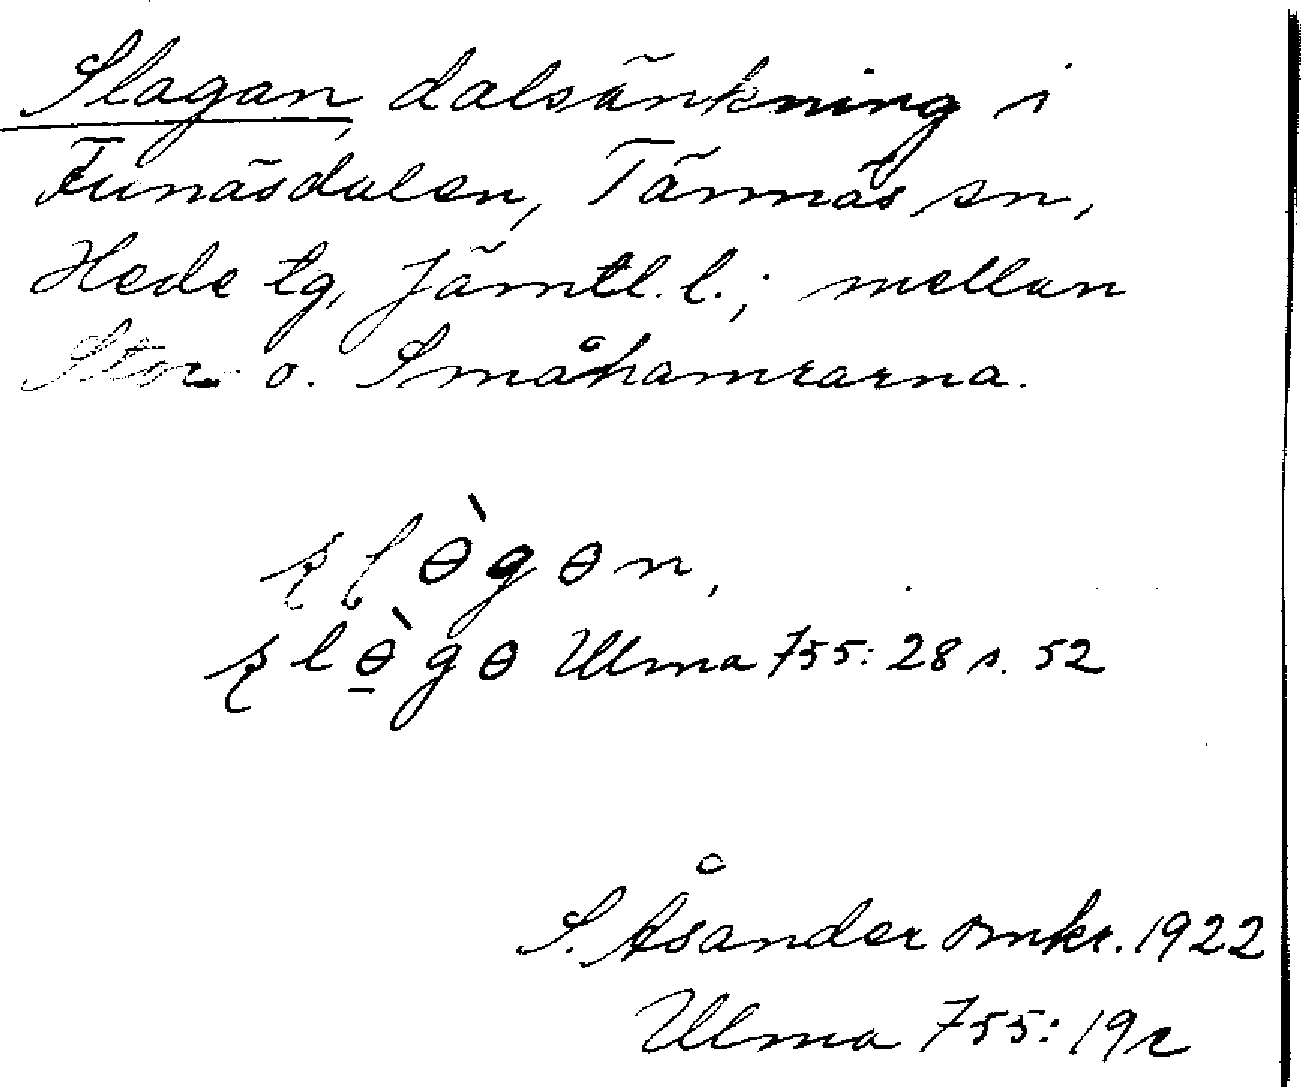 Slagan, dalsänkning i
Funäsdalen, Tännäs sn,
Hede tg, Jämtl. l.; mellan
Stor- o. Småhamrarna.
ʂlɵ̀gɵn,
ʂlɵ̠̀gɵ Ulma 755: 28 s. 52
S. Åsander omkr. 1922
Ulma 755: 19c